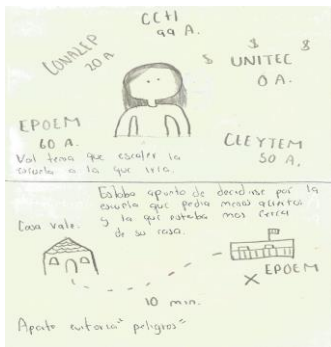 CCH
99 A.
CONALEP
20 A.
$ $ $
UNITEC
0 A.
EPOEM
60 A.
CLEYTEM
50 A.
Val tenia que escoger la
escuela a la que iria.
Estaba apunto de decidirse por la
escuela que pedia menos aciertos
y la que estaba mas cerca
de su casa.
Casa Vale.
EPOEM
10 min.
Aparte evitaria "peligros"